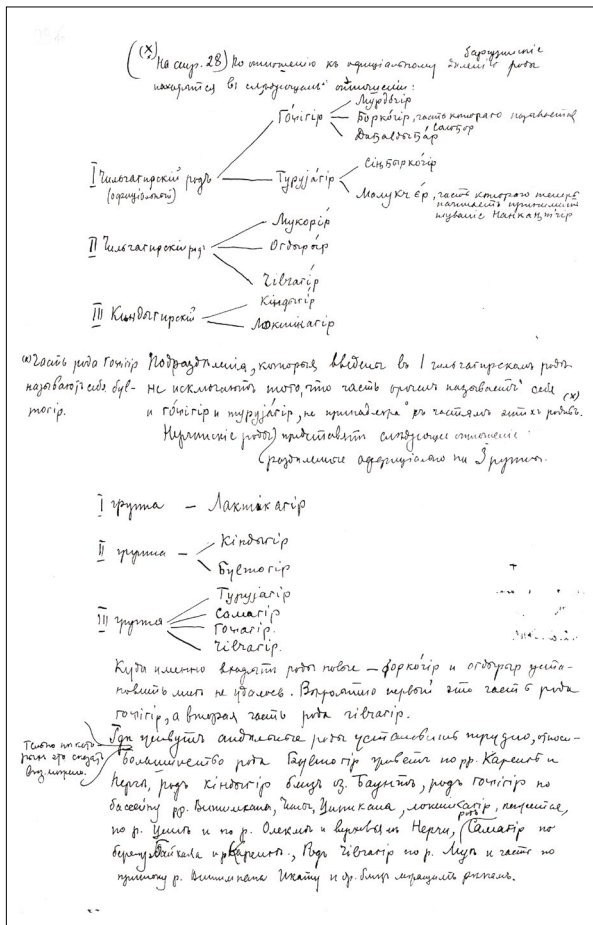 (х) На стр. 28) По отношению къ официальному делению баргузинскіе роды
находятся въ следующемъ отношеніи:
Мурдочір
Гочігір
Боркогір, часть котораго называется
I Чильчагирскій родъ
(официальный)
Турујагір
Сіңбыркогір
Малукчер, часть котораго теперь
начинаетъ принимать
названіе Нанкаңтчер
II Чильчагирскій родъ
Мукорір
Огдырор
Чівчагір
III Кіндыгирскій
Кіндыгір
Локшінагір
(х) Часть рода Гочігір
называютъ себя був-
тогір.
Подразделенія, которыя введены въ I чильчагирскомъ роде
не исключаютъ того, что часть орочен называетъ себя
и гочігір и турујагір, не принадлежа къ частямъ этихъ родовъ. (х)
Нерчинскіе роды) представятъ следующее отношеніе
(разделенные официально на 3 группы.
I группа — Лактикагір
II группа —
Кіндыгір
Бувтогір
III группа
Турујагір
Самагір
Гочагір.
Чівчагір.
Куда именно входятъ роды новые — боркогір и огдырір уста-
новить мне не удалось. Вероятно первый это часть рода
гочігір, а вторая часть рода чівчагір.
Где живутъ отдельные роды установить трудно, относи-
Только по кото-
рымъ это сказать
возможно.
большинство рода Бувтогір живетъ по рр. Каренга и
Нерчи, родъ кіндыгір близъ оз. Баунтъ, родъ гочігір по
бассейну рр. Витимкана, Ципы, Ципикана, локшикагір, кажется,
по р. Ципе и по р. Олекме и верховьямъ Нерчи, родъ Самагір по
берегу Байкала и р. Каренге, Родъ Чівчагір по р. Муе и часть по
притоку р. Витимкана Икату и др. близъ лежащимъ рекамъ.